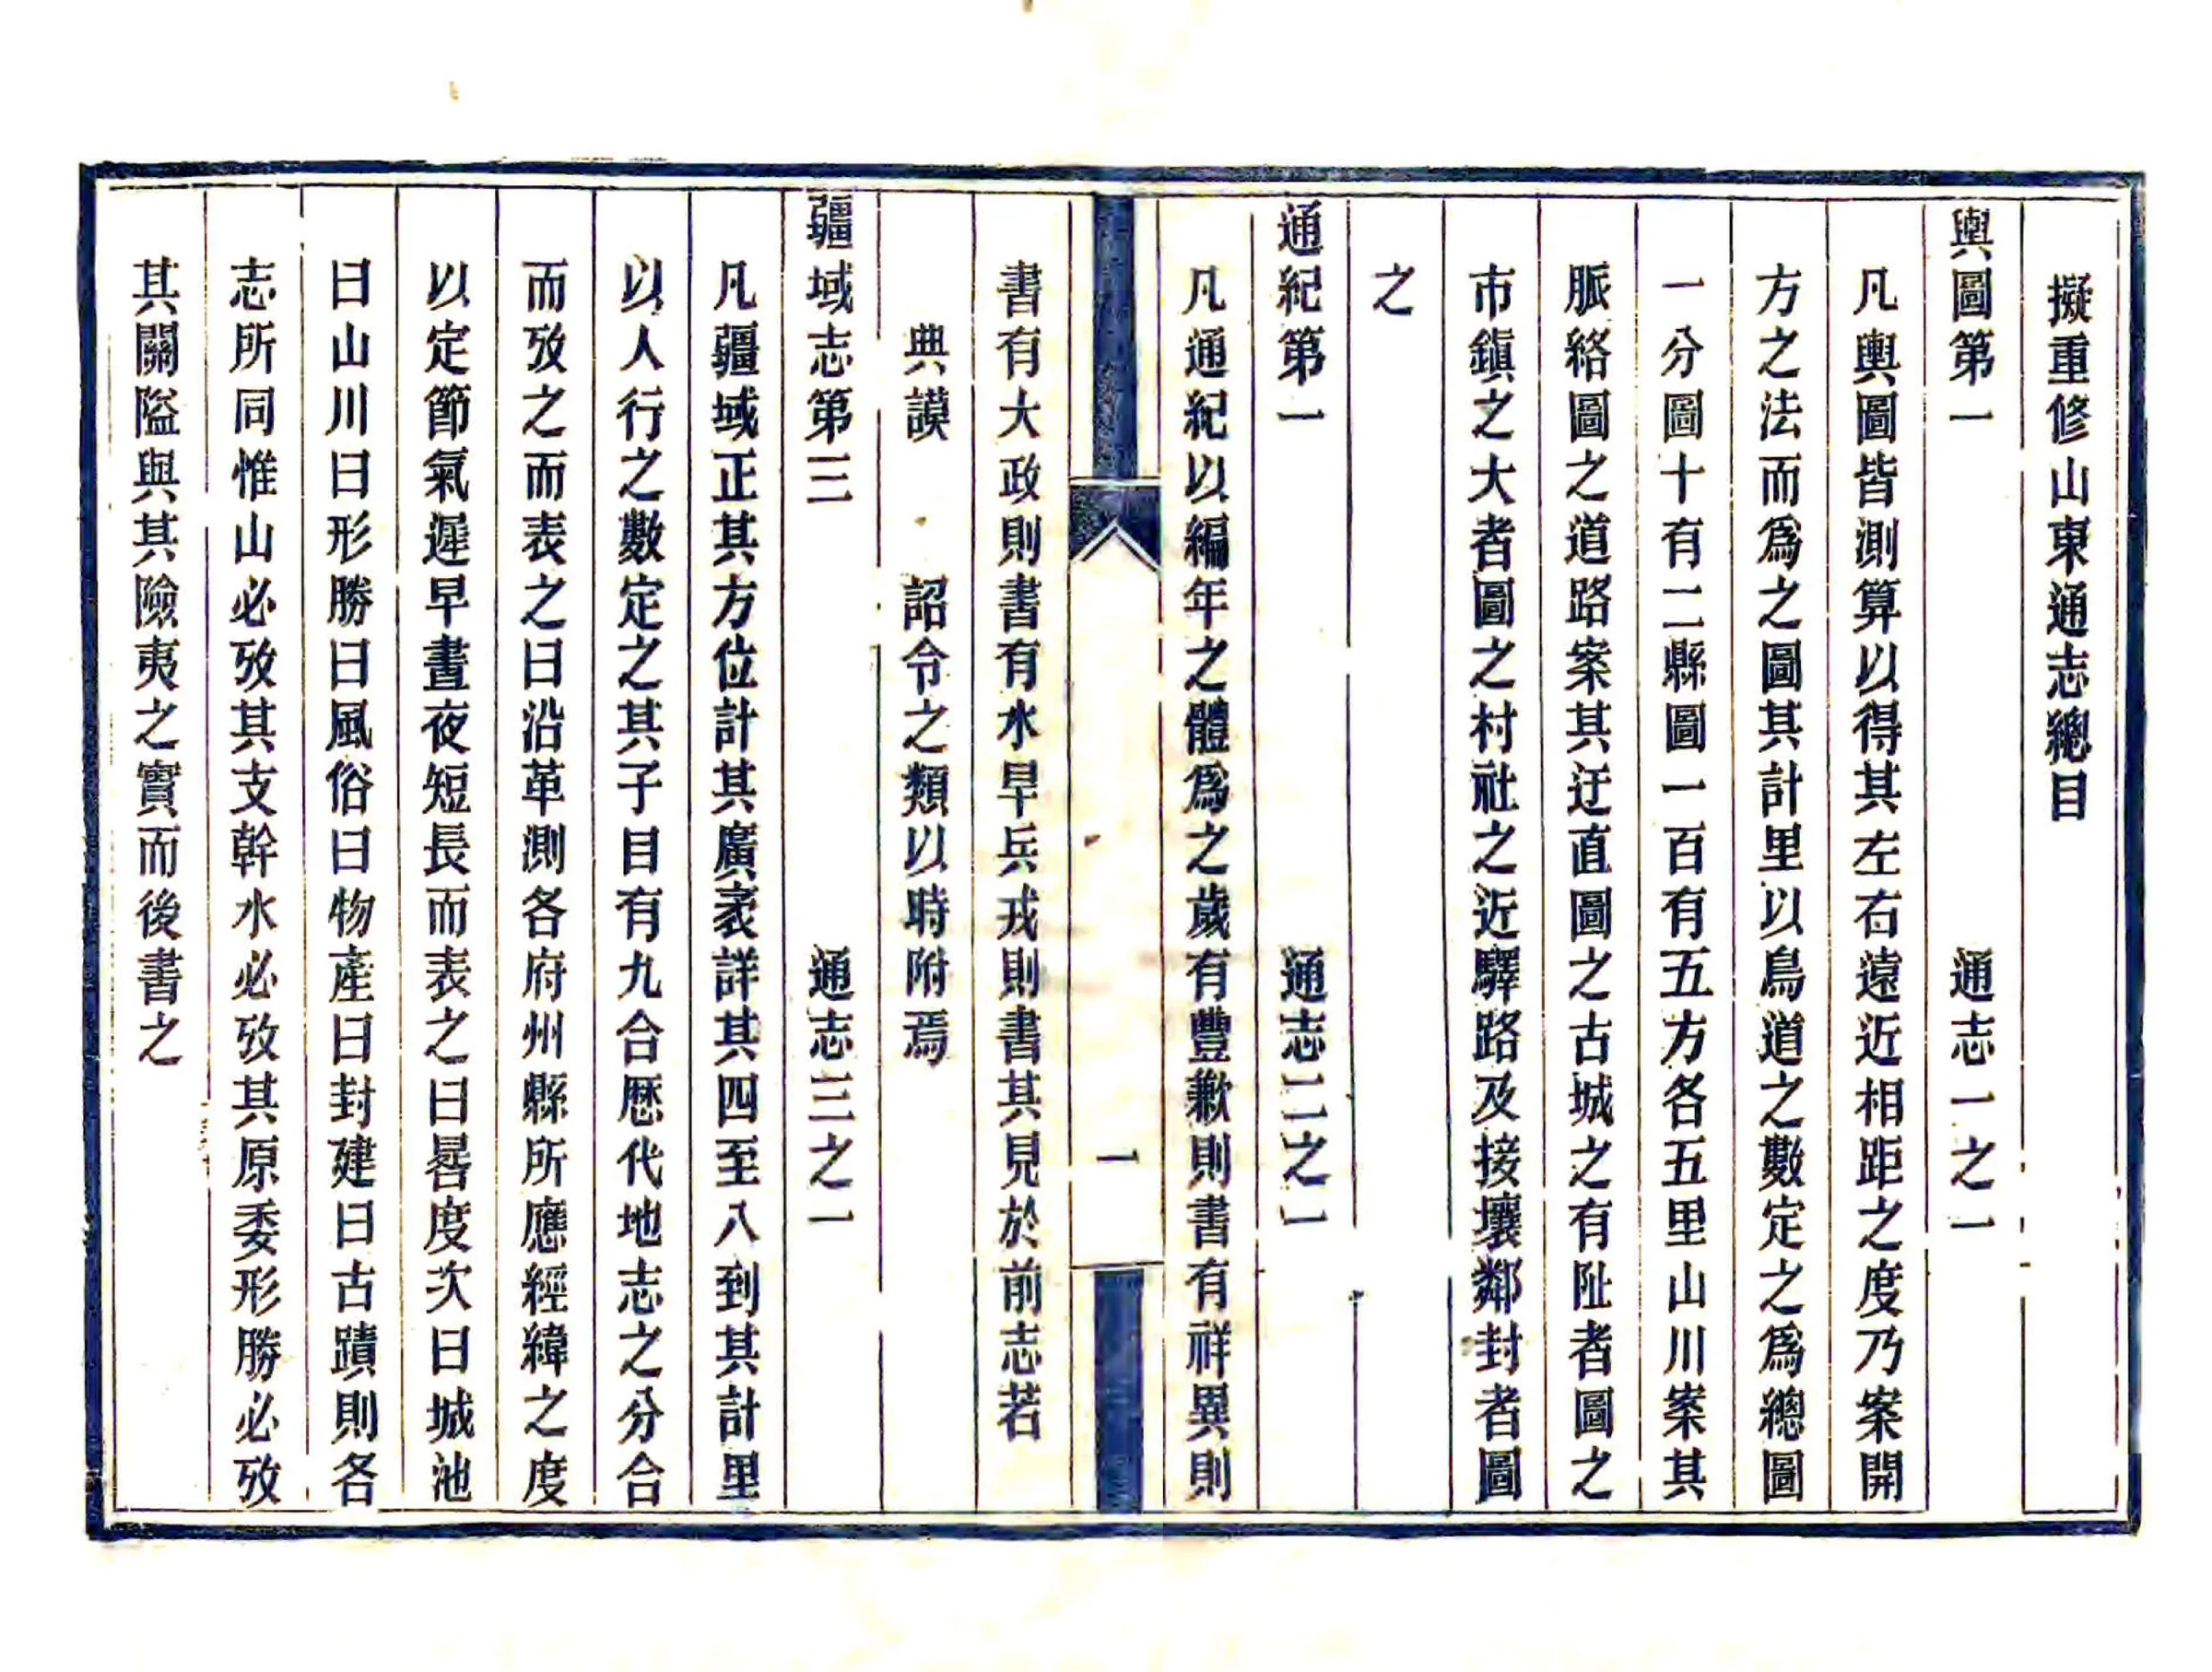 擬重修山東通志總目
輿圖第一 通志一之一
凡輿圖皆測算以得其左右遠近相距之度乃案開
方之法而爲之圖其計里以鳥道之數定之爲總圖
一分圖十有二縣圖一百有五方各五里山川案其
脈絡圖之道路案其迂直圖之古城之有阯者圖之
市鎭之大者圖之村社之近驛路及接壤鄰封者圖
之
通紀第一 通志二之一
凡通紀以編年之體爲之歲有豐歉則書有祥異則
一
書有大政則書有水旱兵戎則書其見於前志若
典謨 詔令之類以時附焉
疆域志第三 通志三之一
凡疆域正其方位計其廣袤詳其四至八到其計里
以人行之數定之其子目有九合歷代地志之分合
而攷之而表之曰沿革測各府州縣所應經緯之度
以定節氣遲早晝夜短長而表之曰晷度次曰城池
曰山川曰形勝曰風俗曰物產曰封建曰古蹟則各
志所同惟山必攷其支幹水必攷其原委形勝必攷
其關隘與其險夷之實而後書之